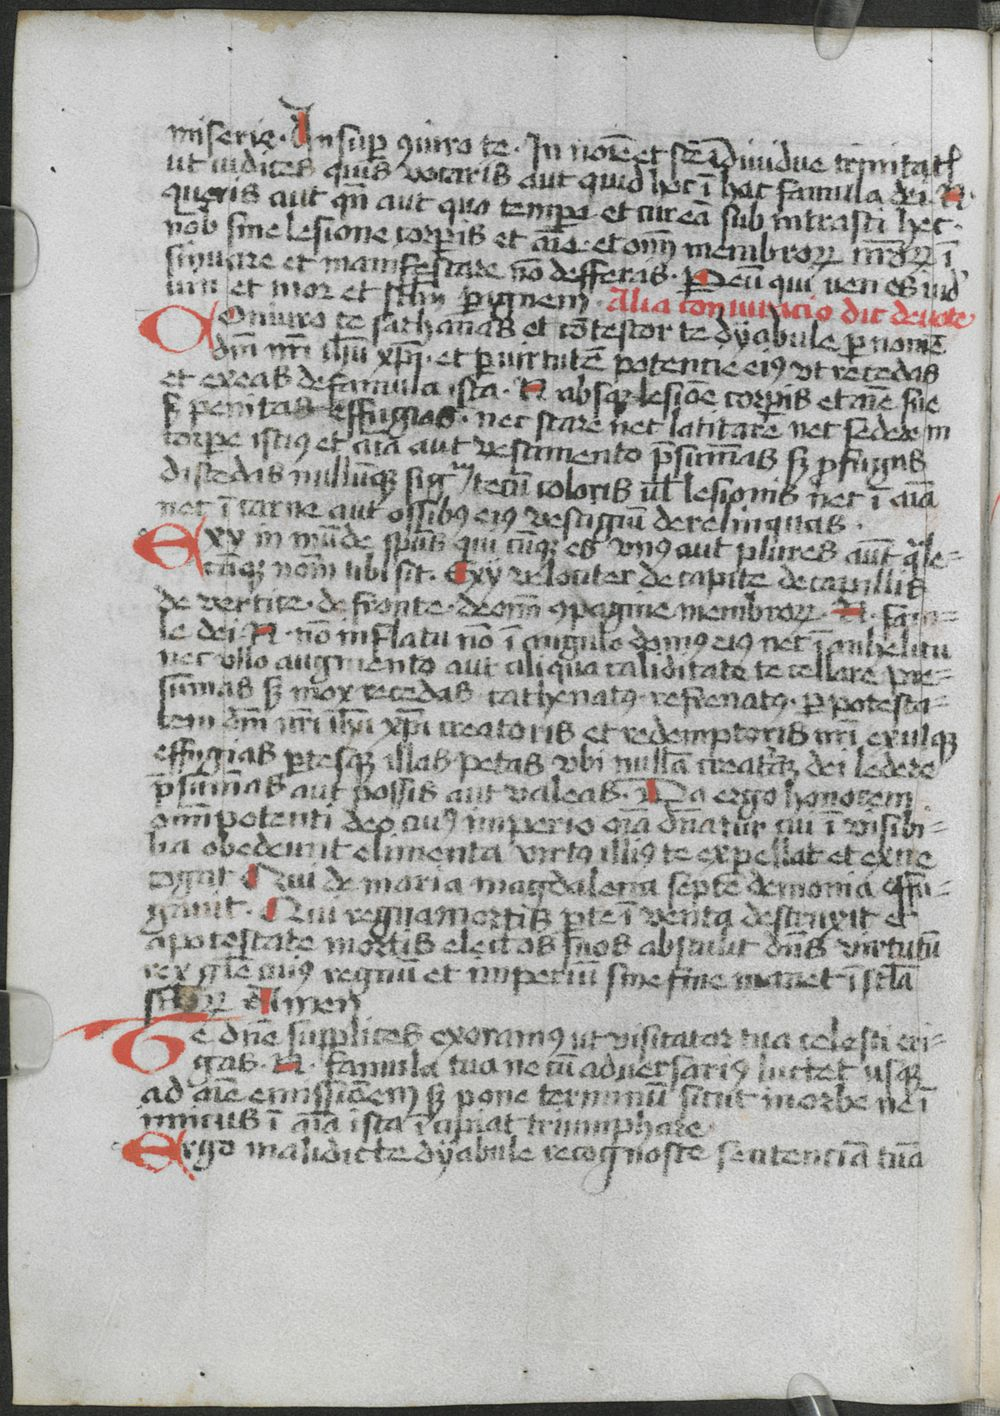 miserie. Insup ꝯiuro te. In noīe et scē īdiuidue trinitatꝭ
ut iudices quis vocaris aut quid hec ī hac famula dei N.
queris aut qn̄ aut quo tempe et cur eā sub intrasti hec.
nob sine lesione corpis et aīe. et om̄ membroꝝ
et manifestare nō defferas. P eū qui ven es iud
viu et mor et sclm̄ p ignem. Alia coniuracio dic deuote
Coniuro te sathanas et cōtestor te dyabule p nomē
dn̄i nr̄i ihū xp̄i. et p uirtutē potentie eiꝰ vt recedas
et exeas de famula ista. N absqꝫ lesiōe corpis et aīe sue
sꝫ penitas effugias. nec stare nec latitare nec sedere in
corpe istiꝰ et aīa aut vestimento p̄sumas sꝫ profugus
discedas nullūqꝫ tecū coloris ul lesionis nec ī aīa
nec ī carne aut ossibꝰ eiꝰ vestigiū derelinquas.
Exy in mūde spūs qui cūqꝫ es vnꝰ aut plures aut qͣle-
cūqꝫ nom̄ tibi sit. Exy velociter de capite de capillis
de vertice. de fronte. de om̄ ꝯpagine membroꝝ. N. famu-
le dei N. nō in flatu nō ī angulo domꝰ eiꝰ nec ī anhelitu
nec ullo augmento aut aliqua caliditate te cellare pre-
sumas sꝫ mox recedas. cathenatꝰ. refrenatꝰ. p potesta-
tem dn̄i nr̄i ihū xp̄i creatoris et redemptoris nr̄i exulqꝫ
effugias ptesqꝫ illas petas vbi nullā creat͛ dei ledere
p̄sumas aut possis aut valeas. Da ergo honorem
omīpotenti deo cuiꝰ imperio oīa dn̄atur cui ī visibi-
lia obediunt elimenta virtꝰ illiꝰ te expellat et exire
cogat Qui de maria magdalena septē demonia effu-
gauit. Qui regna mortis pte ī venta destruxit et
a potestate mortis electos suos abstulit dn̄s virtutū
rex gl̄e cuiꝰ regnū et imperiū sine fine manet ī scl̄a
scl̄oꝝ Amen
Te dn̄e supplices exoramꝰ ut visitator tua celesti eri-
gas. N. famula tua ne cū adversariꝰ luctet usqꝫ
ad aīe emissiōem sꝫ pone terminū sicut morbe ne ī
imicus ī aīa ista īcipiat triumphare
Ergo maledicte dyabule recognosce sentenciā tuā